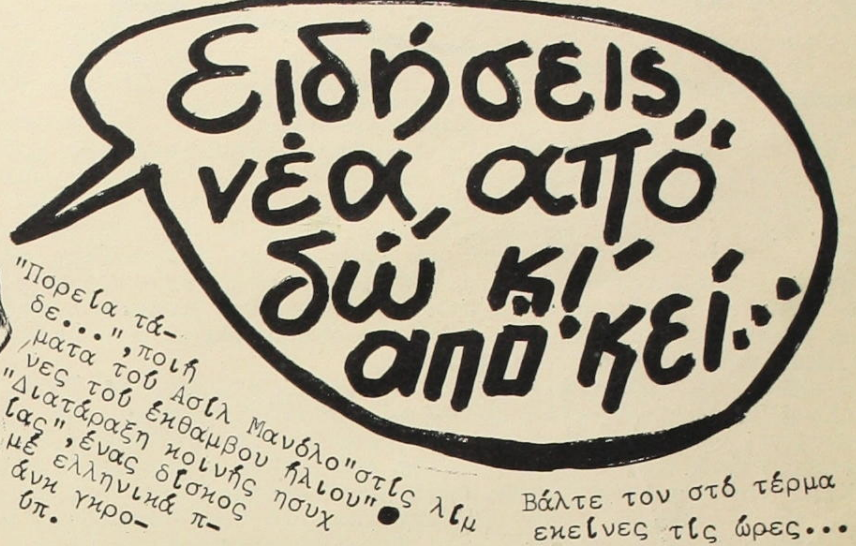 Ειδήσεις,
νέα, από
δώ κι'
από 'κεί...
"Πορεία τά-
δε...",ποιή
ματα τού Ασίλ Μανόλο"στίς λίμ
νες τού έκθαμβου ήλιου"●
"Διατάραξη κοινής ησυχ
ίας",ένας δίσκος
μέ ελληνικά π-
άνκ γκρο-
ύπ.
Βάλτε τον στό τέρμα
εκείνες τίς ώρες...